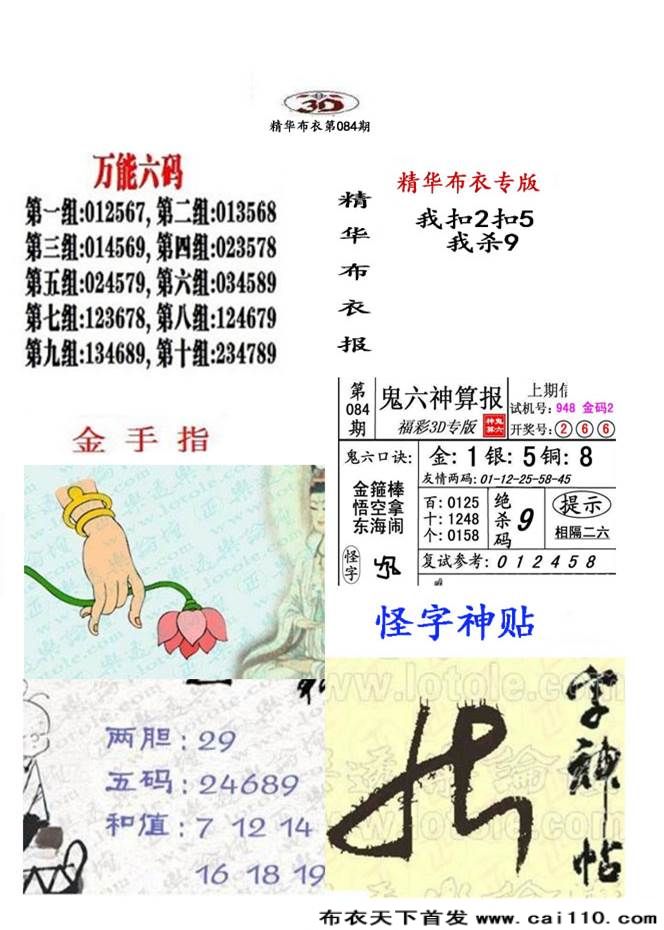 3D
精华布衣第084期
万能六码
第一组:012567,第二组:013568
第三组:014569,第四组:023578
第五组:024579,第六组:034589
第七组:123678,第八组:124679
第九组:134689,第十组:234789
精华布衣报
精华布衣专版
我扣2扣5
我杀9
第084期
鬼六神算报
福彩3D专版
神鬼算六
上期信
试机号:948 金码2
开奖号:②⑥⑥
鬼六口诀:
金:1银:5铜:8
友情两码:01-12-25-58-45
金箍棒
悟空拿
东海闹
百:0125
十:1248
个:0158
绝杀码
9
提示
相隔二六
怪字
复试参考:012458
金手指
怪字神贴
www.lotole.com
字神帖
两胆:29
五码:24689
和值:7 12 14
16 18 19
布衣天下首发 www.cai110.com